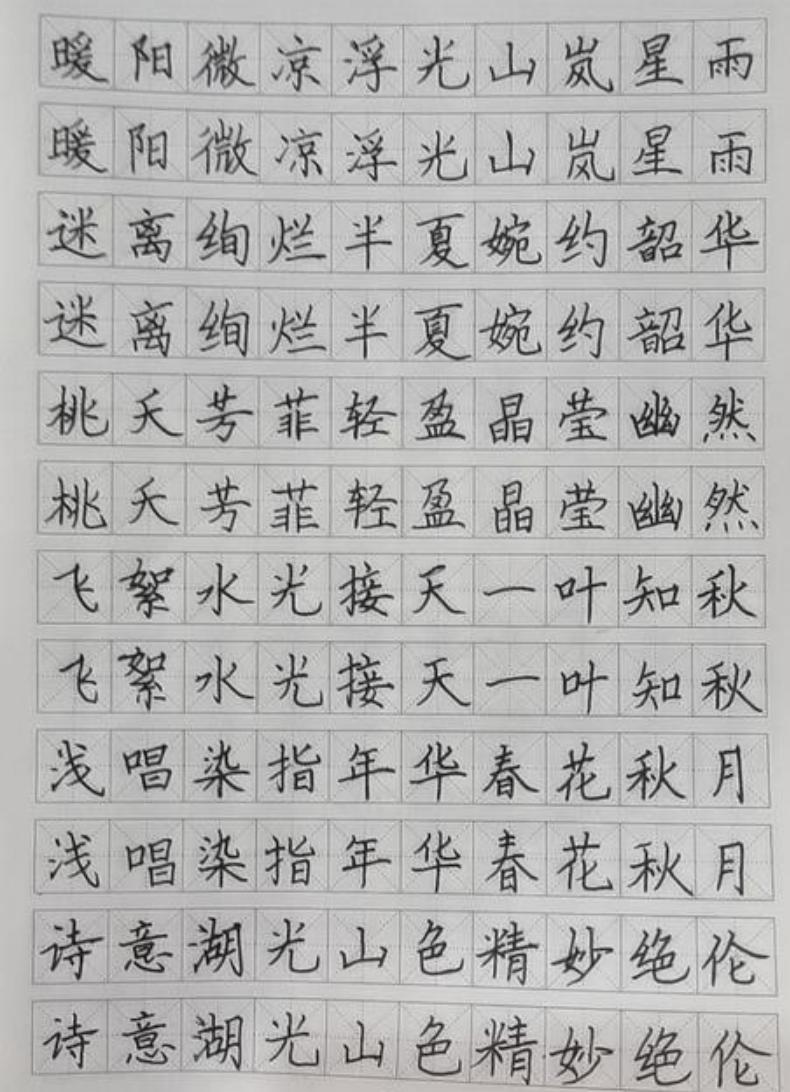 暖阳微凉浮光山岚星雨
暖阳微凉浮光山岚星雨
迷离绚烂半夏婉约韶华
迷离绚烂半夏婉约韶华
桃夭芳菲轻盈晶莹幽然
桃夭芳菲轻盈晶莹幽然
飞絮水光接天一叶知秋
飞絮水光接天一叶知秋
浅唱染指年华春花秋月
浅唱染指年华春花秋月
诗意湖光山色精妙绝伦
诗意湖光山色精妙绝伦